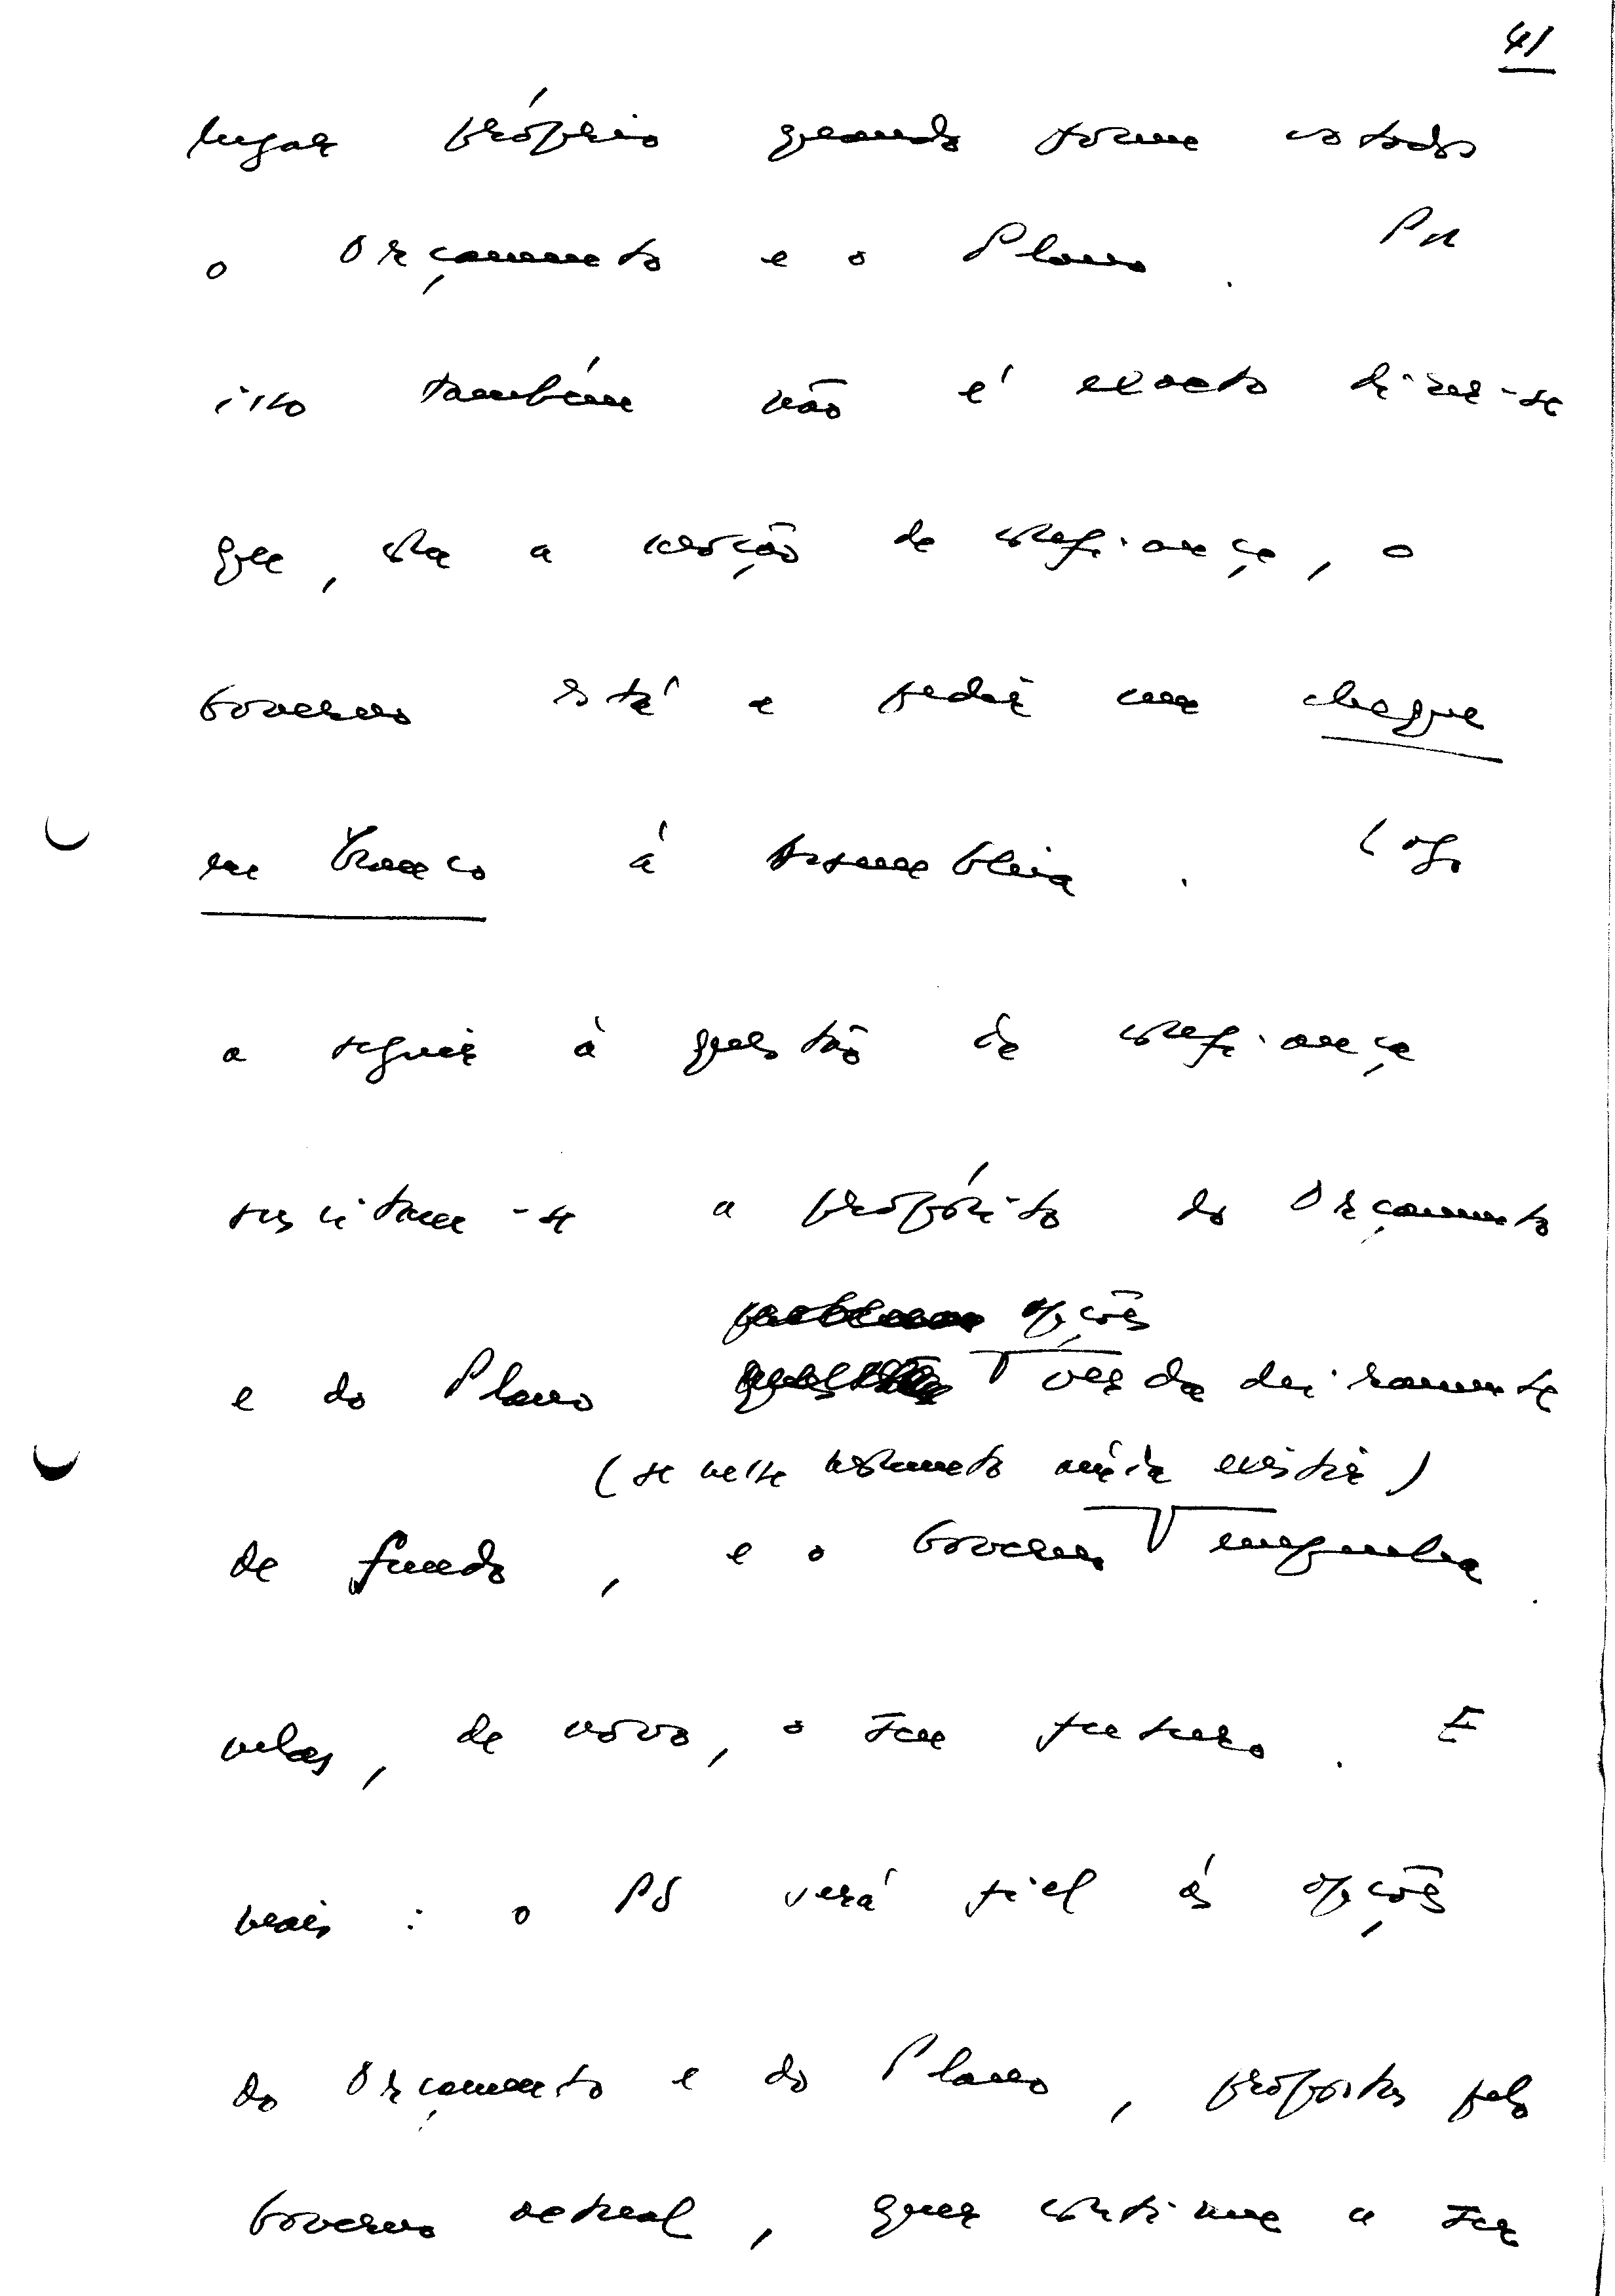 41
lugar próprio quando forem votados
o Orçamento e o Plano. Por
isso também não é exacto dizer-se
que, com a moção de confiança, o
Governo está a pedir um cheque
em branco à Assembleia. Logo
a seguir à questão de confiança
suscitam-se a propósito do Orçamento
opções
e do Plano verdadeiramente
(se nesse momento ainda existir)
de fundo, e o Governo empenha
nelas, de novo, o seu futuro. E
mais: o PS será fiel às opções
do Orçamento e do Plano, propostas pelo
Governo actual, quer continue a ser